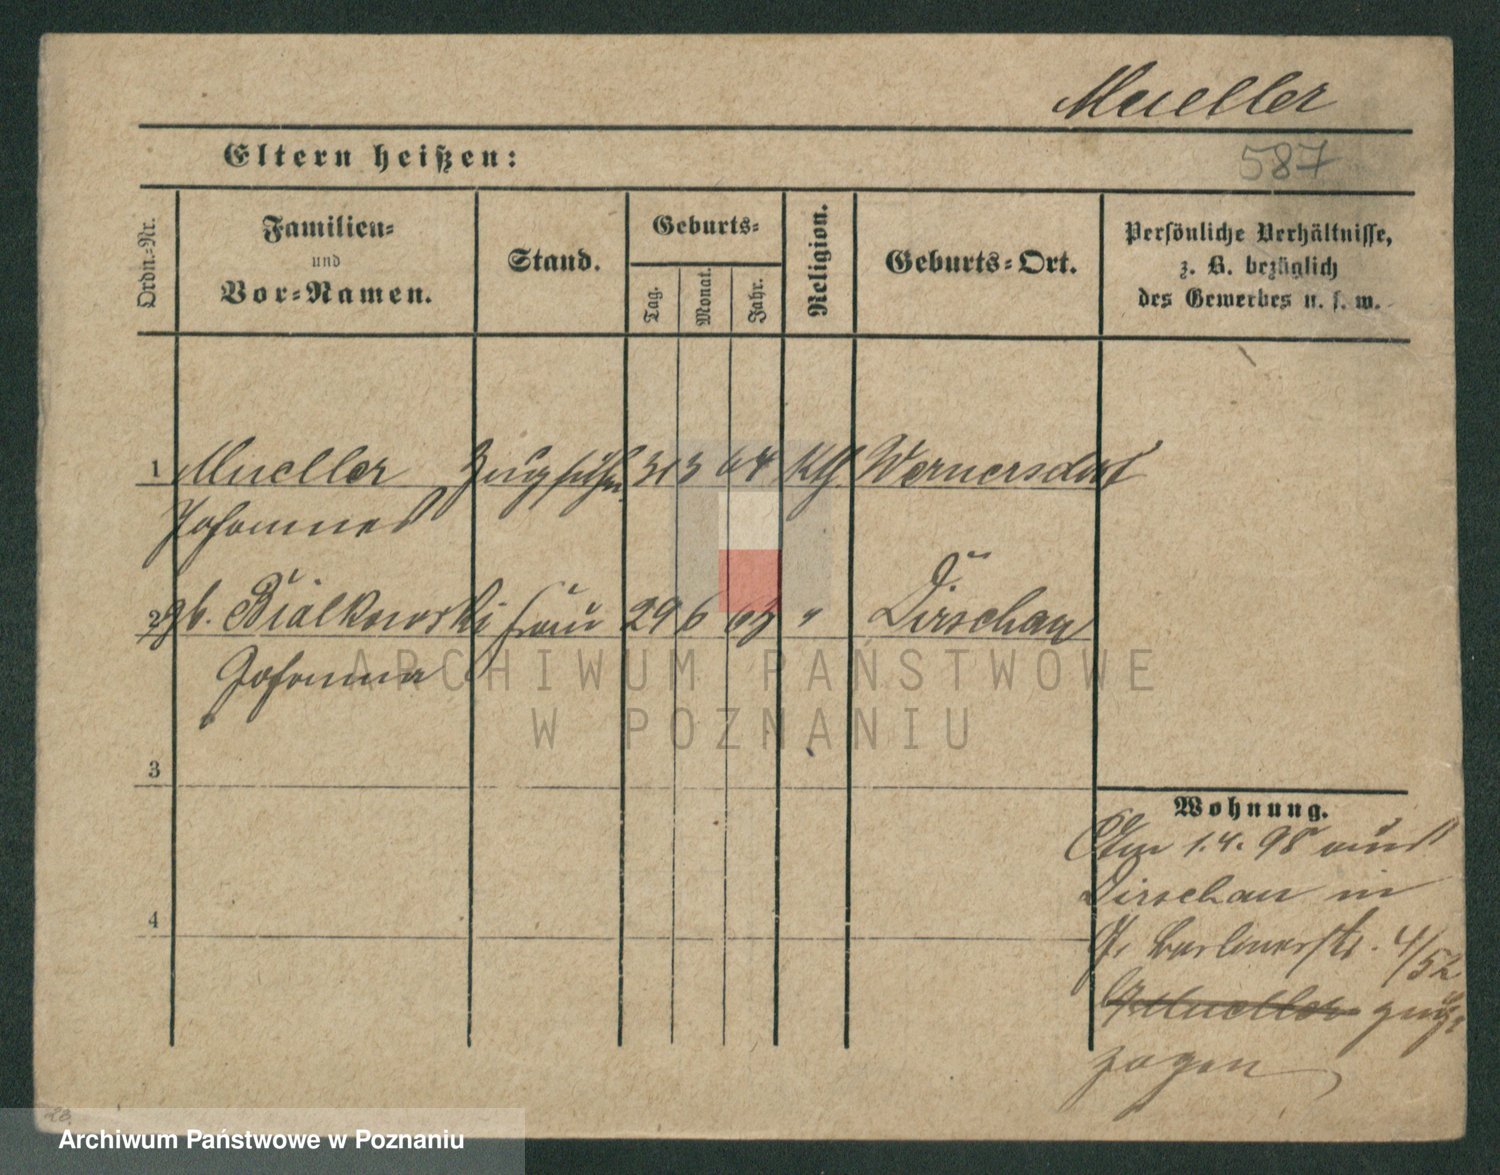 Mueller
587
Eltern heißen:
Ordn.-Nr.
Familien-
und
Vor-Namen.
Stand.
Geburts-
Tag.
Monat.
Jahr.
Religion.
Geburts-Ort.
Persönliche Verhältnisse,
z. B. bezüglich
des Gewerbes u. s. w.
1 Mueller Zugführer 31 3 64 Kth. Wernersdorf
Johannes
2 gb. Bialkowski Frau 29 6 63 " Dirschau
Johanna
3
4
Wohnung.
Am 1.4.98 aus
Dirschau in
Berlinerstr. 4/52
Mueller zuge-
zogen
ARCHIWUM PAŃSTWOWE
W POZNANIU
Archiwum Państwowe w Poznaniu